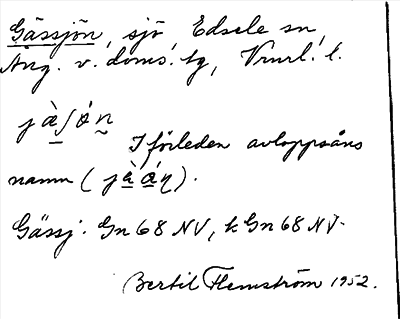 Gässjön, sjö, Edsele sn,
Ång. v. doms. tg, Vnrl. l.
jä̀ʃó̱n̰
I förleden avloppsåns
namn (jä̀á̱η).
Gässj. Gn 68 NV, kGn 68 NV.
Bertil Flemström 1952.